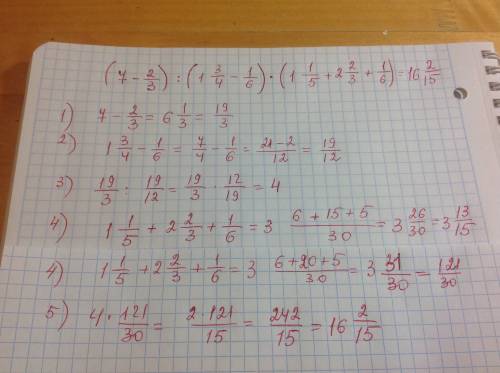 (7 - 2/3) : (1 3/4 - 1/6) · (1 1/5 + 2 2/3 + 1/6) = 16 2/15
1) 7 - 2/3 = 6 1/3 = 19/3
2) 1 3/4 - 1/6 = 7/4 - 1/6 = 21-2/12 = 19/12
3) 19/3 : 19/12 = 19/3 · 12/19 = 4
4) 1 1/5 + 2 2/3 + 1/6 = 3 6+15+5/30 = 3 26/30 = 3 13/15
4) 1 1/5 + 2 2/3 + 1/6 = 3 6+20+5/30 = 3 31/30 = 121/30
5) 4 · 121/30 = 2·121/15 = 242/15 = 16 2/15